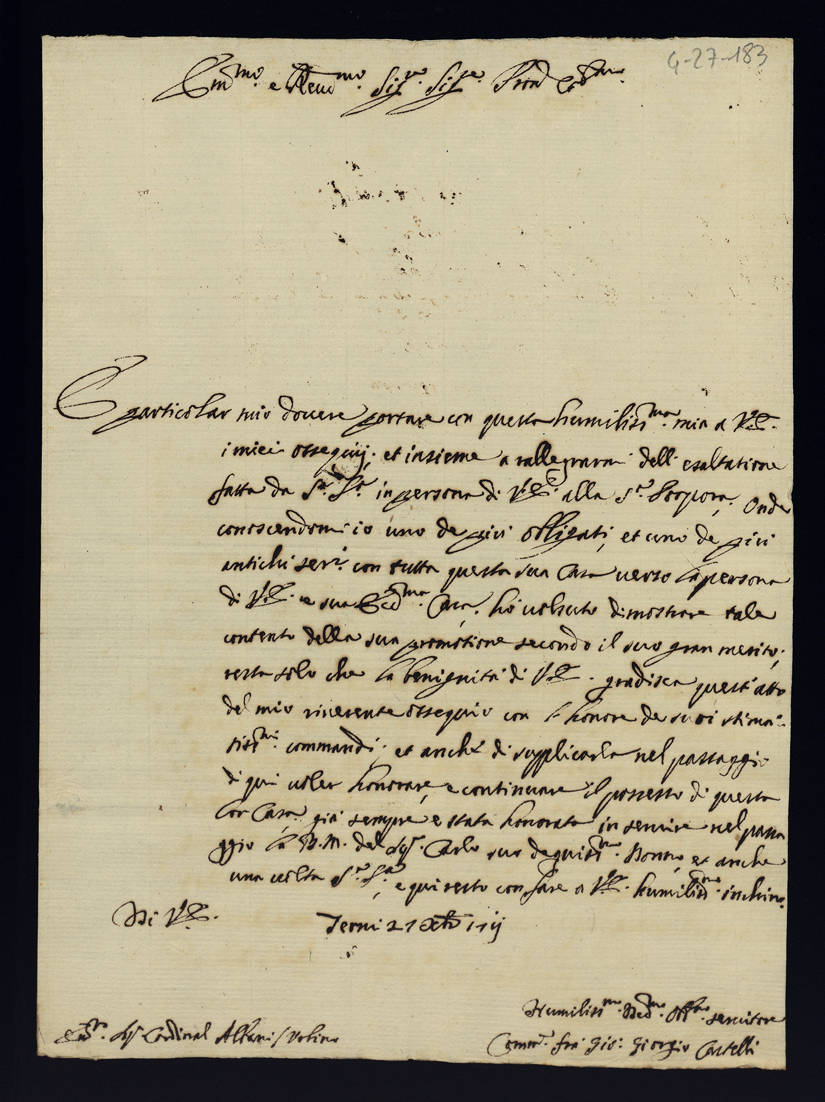 4-27-183
Em.mo e Reud.mo Sig.re Sig.re Pron
È particolar mio douere portare con questa humiliss.ma mia a V.E.
i miei ossequij, et insieme a rallegrarmi dell'esaltatione
fatta da S.a S.tà in persona di V.E. alla S.a Porpora, Onde
conoscendomi io uno de più obligati, et uno de più
antichi ser.i con tutta questa sua Casa uerso la persona
di V.E. e sua Ecc.ma Casa, hò uoluto dimostrare tale
contento della sua promotione secondo il suo gran merito;
resta solo che la benignità di V.E. gradisca quest'atto
del mio riuerente ossequio con l'honore de suoi stima-
tiss.mi commandi, et anche di supplicarla nel passaggio
di qui uoler honorare, e continuare il possesso di questa
lor Casa, già sempre è stata honorata in seruire nel passa
ggio la B.M. del Sig. Carlo suo degniss.mo et anche
una uolta S.a S.tà, e qui resto con fare a V.E. humiliss.mo inchino
Di V.E.
Terni 27 Xbre 1711
Humiliss.mo Deu.mo Obl.mo seruitore
Comm.r frà Gio: Giorgio Castelli
Sig. Cardinal Albani / Urbino